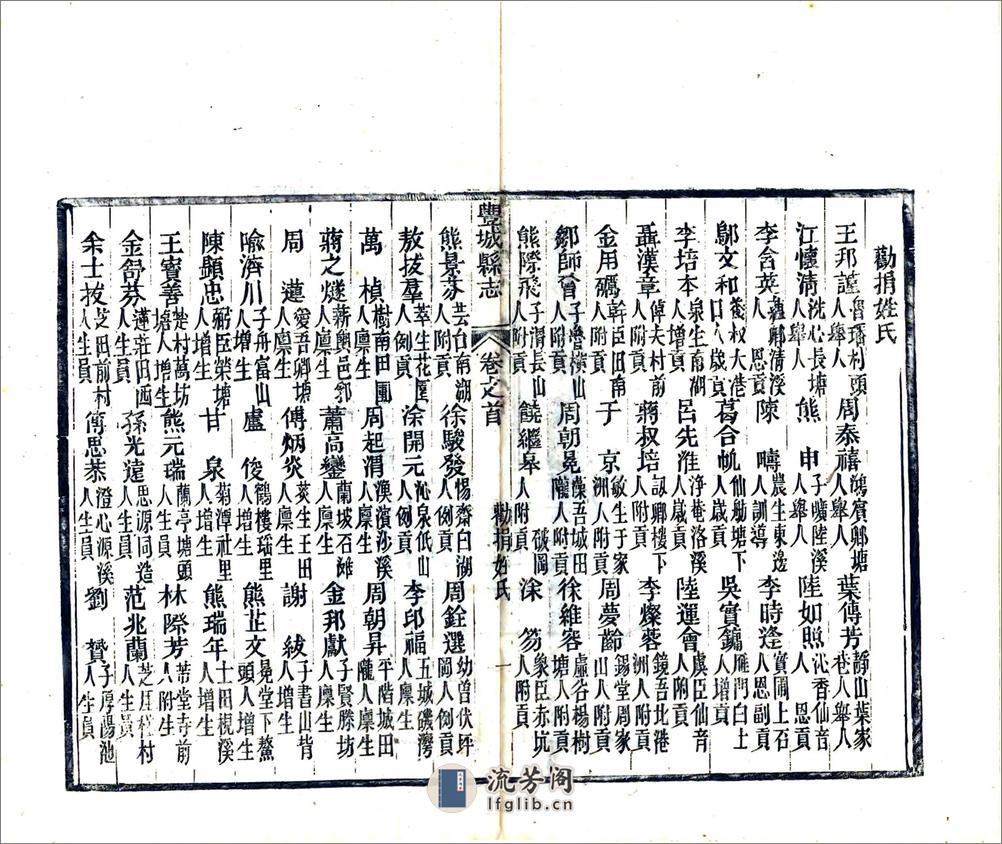 勸捐姓氏
王邦謹魯璠村頭人舉人 周泰禧鴻賓鄴塘人舉人 葉傳芳靜山葉家巷人舉人
江懷清洗心長塘人舉人 熊申子曠陸溪人舉人 陸如照沁香仙音人恩貢
李含英清溪人恩貢 陳疇農生東邊人訓導 李時逢寶圃上石人恩副貢
鄔文和大港口人歲貢 葛合帆仙舫塘下人歲貢 吳實鏞雁門白土人歲貢
李培本泉生南湖人增貢 呂先淮淨菴洛溪人歲貢 陸運會虞臣仙音人附貢
聶漢章倬夫村前人附貢 蔣叔培訒卿樓下人附貢 李燦蓉鏡吾北港洲人附貢
金用礪幹臣田南人附貢 于京敏生于家洲人附貢 周夢齡錫堂周家山人附貢
鄒師會子魯橫山人附貢 周朝晃燦吾城田隴人附貢 徐維容虛谷楊樹塘人附貢
熊際飛子渭長山人附貢 饒繼皋破岡人附貢 涂笏象臣赤坑人附貢
豐城縣志 卷之首 勸捐姓氏 一
熊景芬芸台南湖人附貢 徐駿發惕齋白湖人例貢 周銓選幼曾伏坪岡人例貢
敖拔羣萃生花園人例貢 涂開元沁泉低山人例貢 李邱福五城磯灣人廩生
萬楨樹南田圃人廩生 周起渭漢濱沙溪人廩生 周朝昇平階城田隴人廩生
蔣之燧薪輿邑鄉人廩生 蕭高鑾蘭坡石灘人廩生 金邦獻子賢滕坊人廩生
周蓮愛吾卿塘人廩生 傅炳炎莢生王田人廩生 謝紱子書山背人增生
喻濟川子舟富山人增生 盧俊鶴樓瑶里人增生 熊芷文晃堂下鰲頭人增生
陳顯忠弼臣榮塘人增生 甘泉菊潭社里人增生 熊瑞年士田梘溪人增生
王寶善楚村萬坊塘人增生 熊元瑞蘭亭塘頭人增生 林際芳蒂堂寺前人附生
金舒芬蓮莊田西人生員 孫光遠思源同造人生員 范兆蘭芝月程村人生員
余士拔芝田前村人生員 傅思恭澄心源溪人生員 劉贊子厚陽池人生員
流芳阁
lfglib.cn